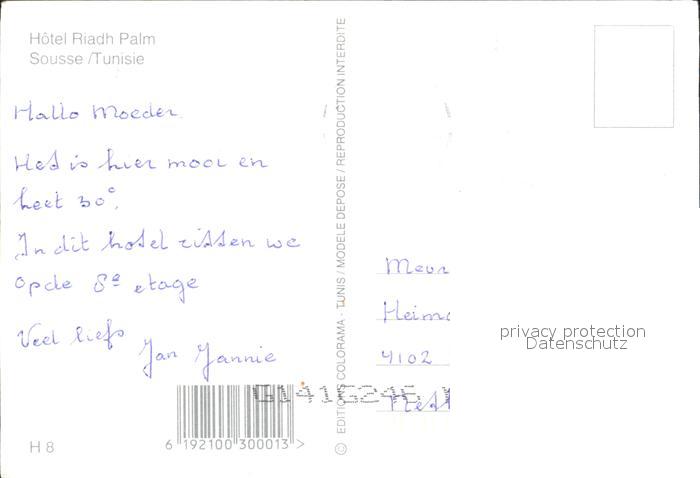 Hôtel Riadh Palm
Sousse /Tunisie
Hallo Moeder
Het is hier mooi en
heet 30°.
In dit hotel zitten we
op de 8e etage
Veel liefs
Jan Jannie
H 8
6 192100 300013 >
© EDITIONS COLORAMA - TUNIS / MODELE DEPOSE / REPRODUCTION INTERDITE
Meur
Heim
4102
privacy protection
Datenschutz